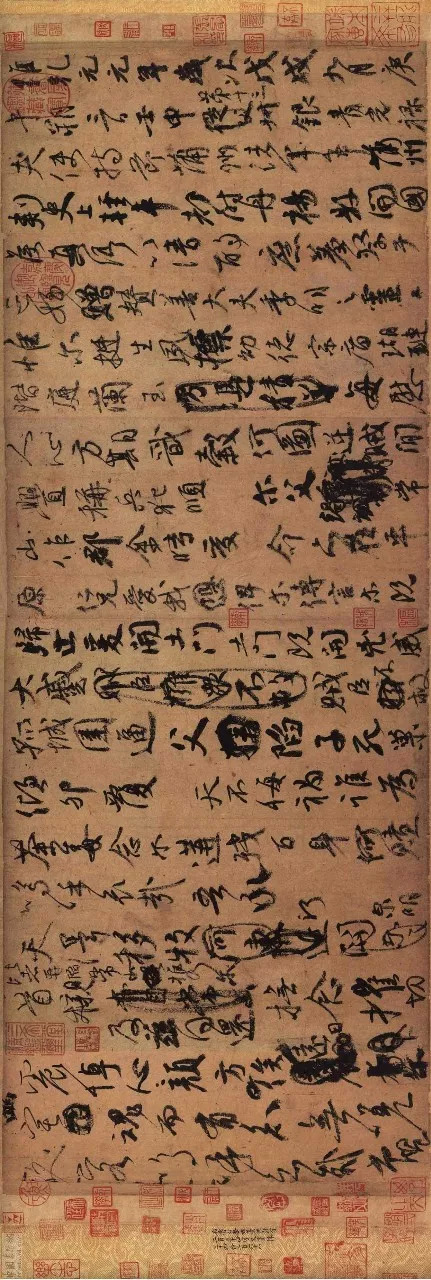 維乾元元年歲次戊戌九月庚
午朔三日壬申第十三叔銀青光祿
夫使持節蒲州諸軍事蒲州
刺史上輕車都尉丹楊縣開國
侯真卿以清酌庶羞祭于
亡姪贈贊善大夫季明之靈曰
惟爾挺生夙標幼德宗廟瑚璉
階庭蘭玉每慰
人心方期戩穀何圖逆賊閒
釁稱兵犯順爾父竭誠常
山作郡余時受命亦在平
原仁兄愛我俾爾傳言爾既
歸止爰開土門土門既開兇威
大蹙賊臣不救
孤城圍逼父陷子死巢
傾卵覆天不悔禍誰為
荼毒念爾遘殘百身何贖
嗚呼哀哉吾承
天澤移牧河關泉明
比者再陷常山攜爾
首櫬及茲同還撫念摧切
震悼心顏方俟遠日
宅魂而有知無嗟久
客嗚呼哀哉尚饗